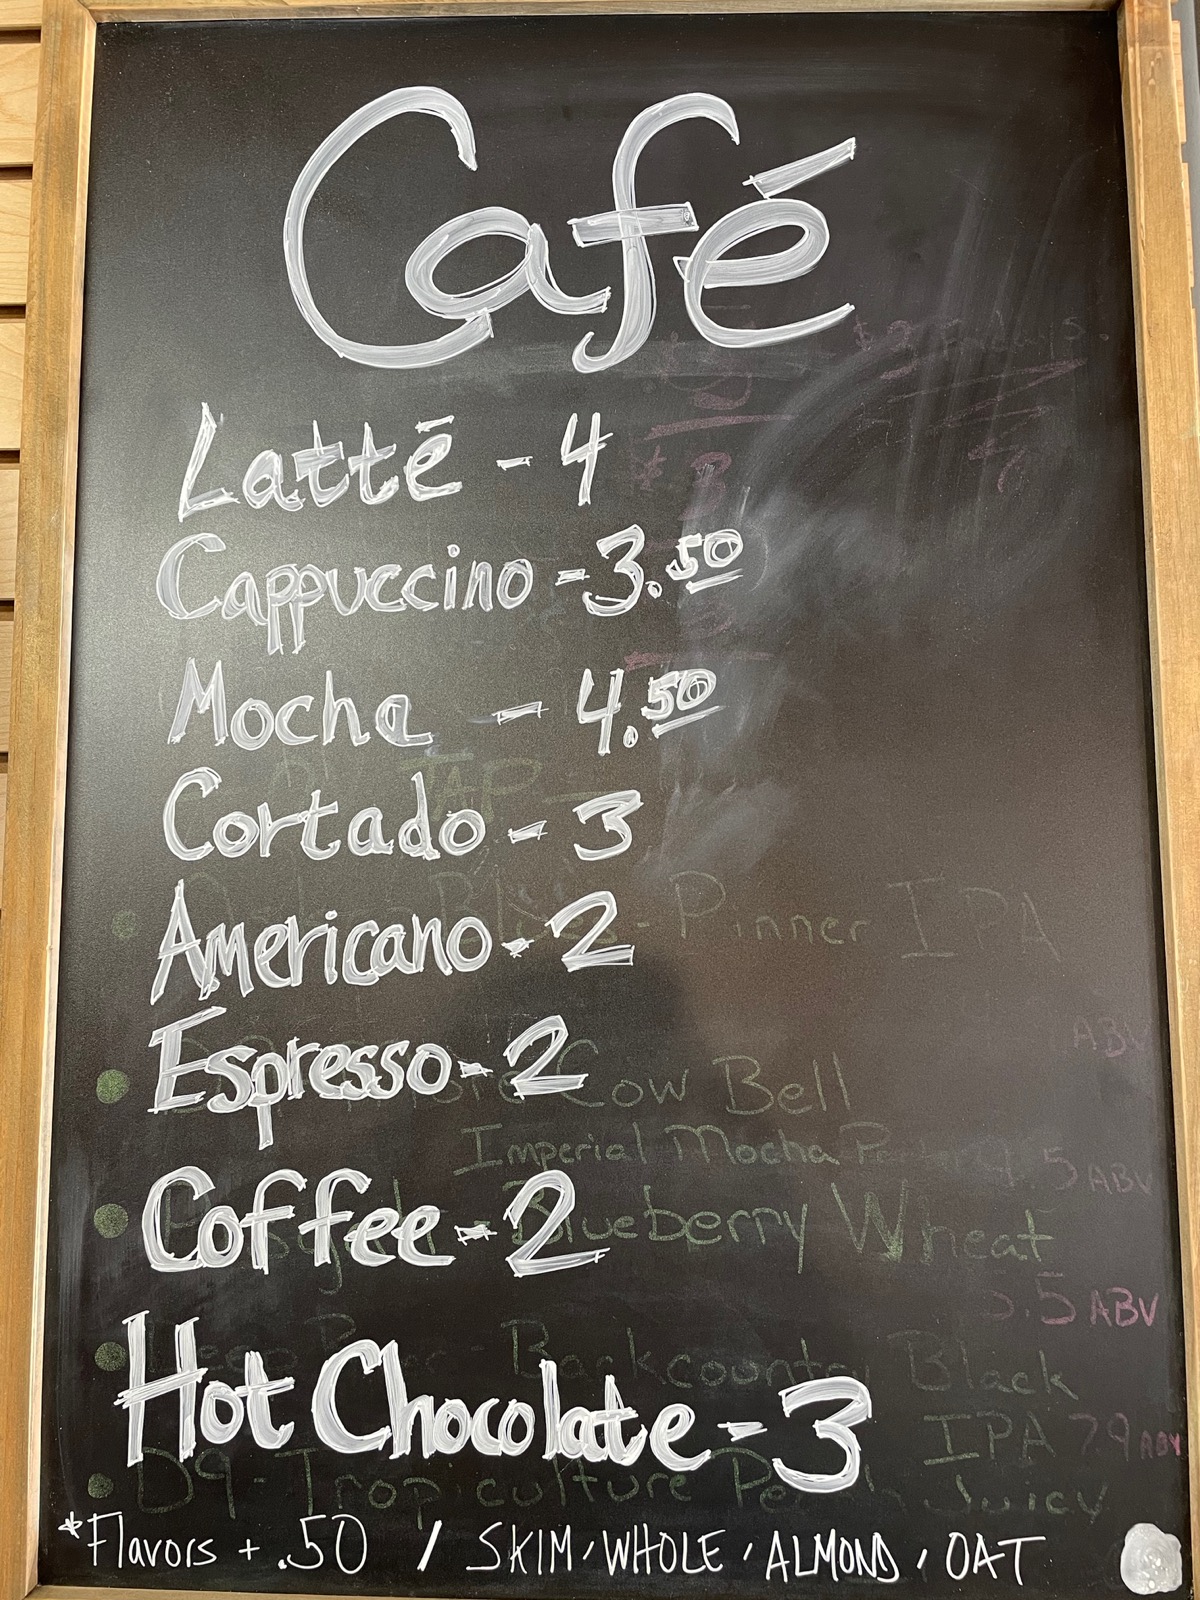 Café
Latté - 4
Cappuccino - 3.50
Mocha - 4.50
Cortado - 3
TAP
Americano - 2
Blues - Pinner IPA
ABV
Espresso - 2
Cow Bell
Imperial Mocha
5 ABV
Coffee - 2
Blueberry Wheat
.5 ABV
Hot Chocolate - 3
Backcountry Black
IPA 7.9 ABV
D9 - Tropiculture Juicy
*Flavors + .50 / SKIM, WHOLE, ALMOND, OAT